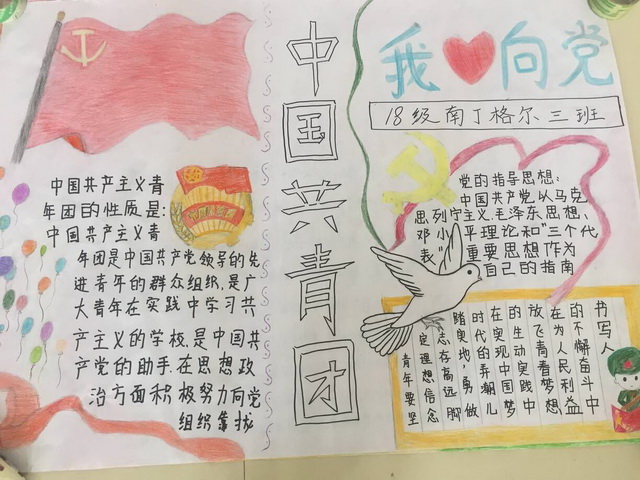 中国共产主义青
年团的性质是:
中国共产主义青
年团是中国共产党领导的先
进青年的群众组织,是广
大青年在实践中学习共
产主义的学校,是中国共
产党的助手,在思想政
治方面积极努力向党
组织靠拢
中国共青团
我向党
18级南丁格尔三班
党的指导思想:
中国共产党以马克
思列宁主义、毛泽东思想、
邓小平理论和"三个代
表"重要思想作为
自己的指南
青年要坚
定理想信念
志存高远脚
踏实地,勇做
时代的弄潮儿
在实现中国梦
的生动实践中
放飞青春梦想
在为人民利益
的不懈奋斗中
书写人